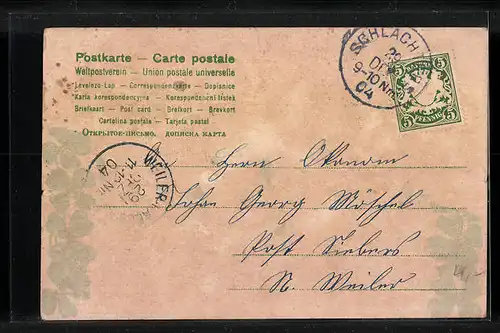 Postkarte — Carte postale
Weltpostverein — Union postale universelle
Levelezo-Lap — Correspondenzkarte — Dopisnice
Karta korespondencyjna — Korespondenční lístek
Briefkaart — Post card — Brefkort — Brevkort
Cartolina postale — Tarjeta postal
ОТКРЫТОЕ-ПИСЬМО. ДОПИСНА КАРТА
SCHLACH
29
9-10 N
04
BAYERN
5 5
PFENNIG
WEILER
29
11-12
04
An Herrn Ökonom
Johann Georg Möschel
Post Siebers
N. Weiler